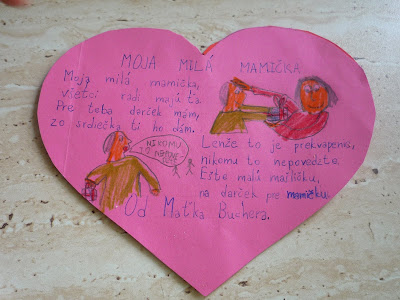 MOJA MILÁ MAMIČKA
Moja milá mamička,
všetci radi majú ťa.
Pre teba darček mám,
zo srdiečka ti ho dám.
Lenže to je prekvapenie,
nikomu to nepovedzte.
Ešte malú mašličku,
na darček pre mamičku.
NIKOMU
Od Maťka Buchera.